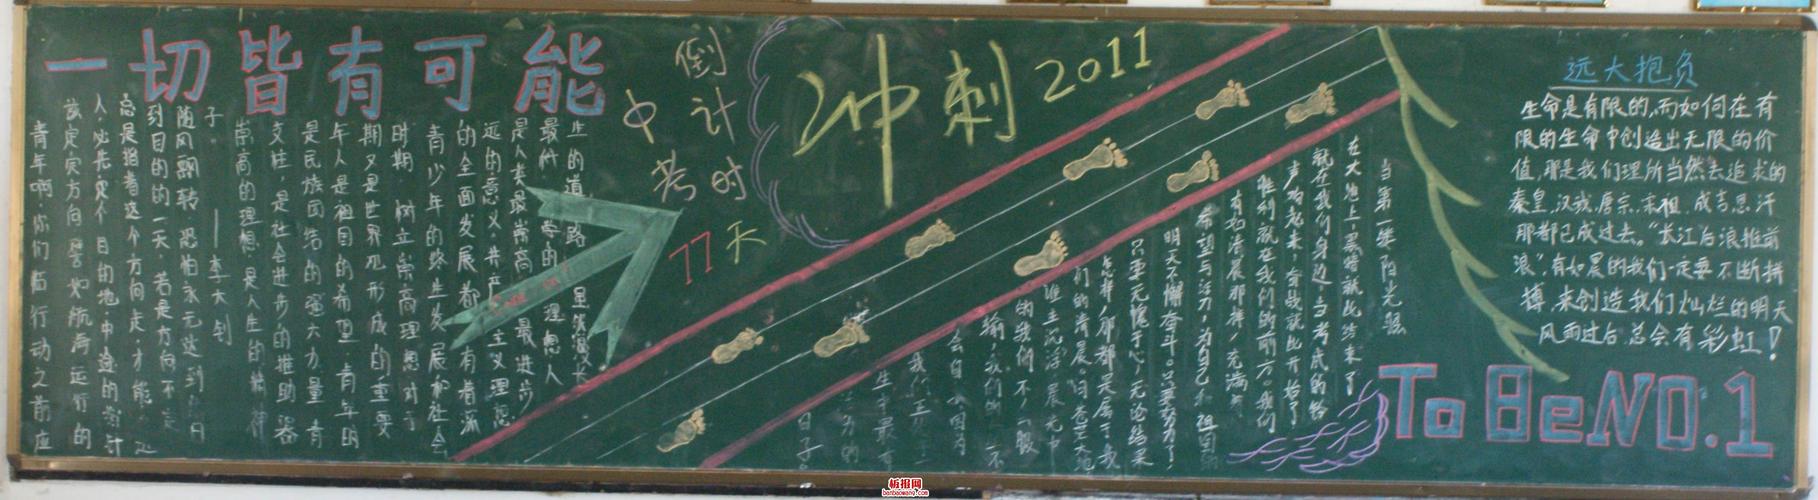 一切皆有可能
青年啊,你们临行动之前应
该定定方向.譬如航海远行的
人,必先定个目的地.中途的指针
总是指着这个方向走,才能
到目的的一天.若是方向不定
随风飘转,恐怕永无达到的日
子
——李大钊
崇高的理想是人生的精神
支柱,是社会进步的推助器
是民族团结的强大力量.青
年人是祖国的希望.青年的
期又是世界观形成的重要
时期 树立崇高理想对于
青少年的终生发展和社会
的全面发展都有着深
远的意义.共产主义理想
是人类最崇高 最进步
最科学的理想 人
生的道路
中考
倒计时
77天
冲刺2011
当第一缕阳光照
在大地上,黑暗就此结束了
就在我们身边,当考底的铃
声响起来,奋战就此开始了
胜利就在我们的前方.我们
有如清晨那样,充满着
希望与活力,为自己和祖国的
明天不懈奋斗,只要努力了,
只要无愧于心,无论结果
怎样,那都是属于我
们的清晨.问苍茫大地
谁主沉浮 晨光中
的我们,不服
日子。
远大抱负
生命是有限的,而如何在有
限的生命中创造出无限的价
值,那是我们理所当然去追求的
秦皇.汉武.唐宗.宋祖.成吉思汗
那都已成过去。"长江后浪推前
浪",有如晨的我们一定要不断拼
搏,来创造我们灿烂的明天
风雨过后,总会有彩虹!
To Be NO.1
板报网
banbaowang.com